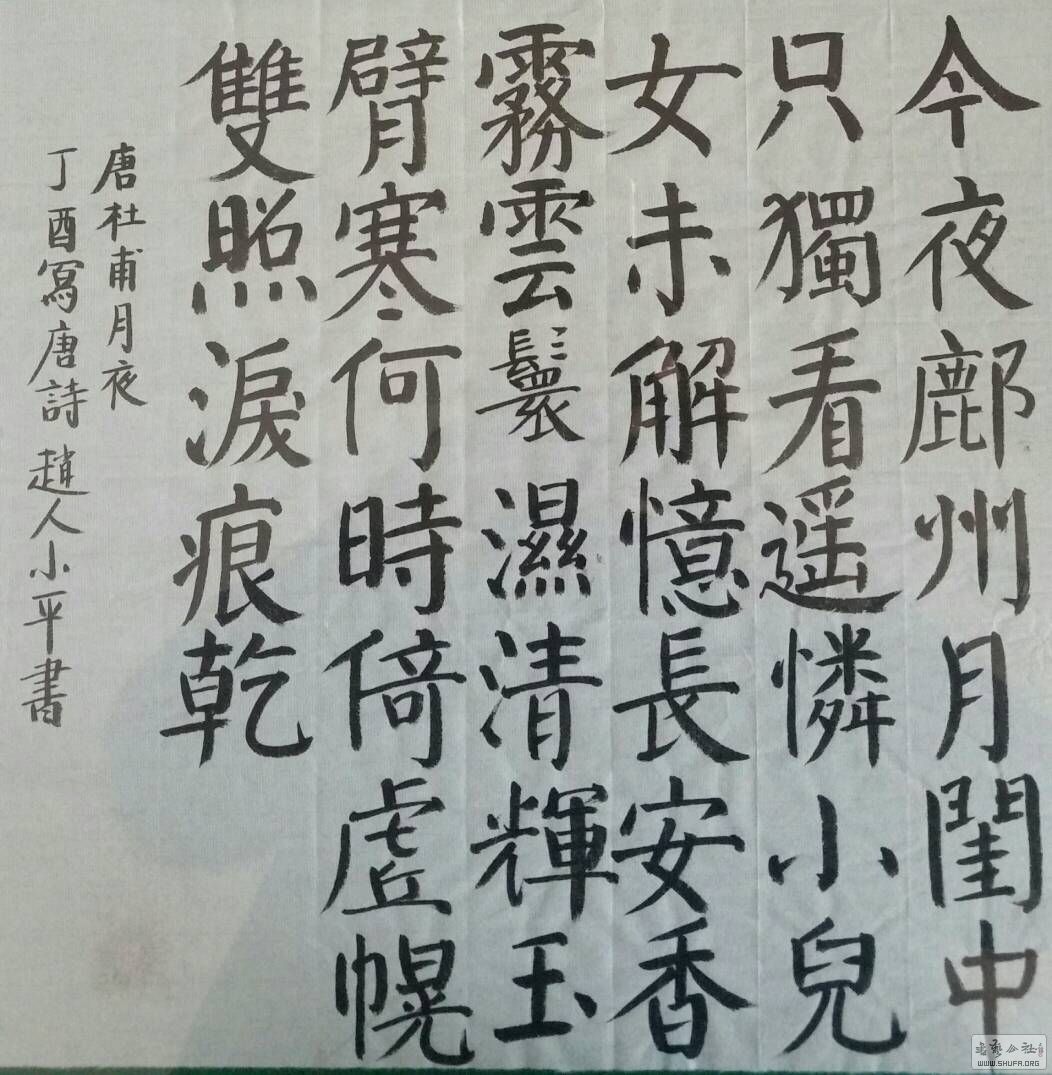 今夜鄜州月閨中
只獨看遥憐小兒
女未解憶長安香
霧雲鬟濕清輝玉
臂寒何時倚虚幌
雙照淚痕乾
唐杜甫月夜
丁酉寫唐詩趙人小平書
WWW.SHUFA.ORG